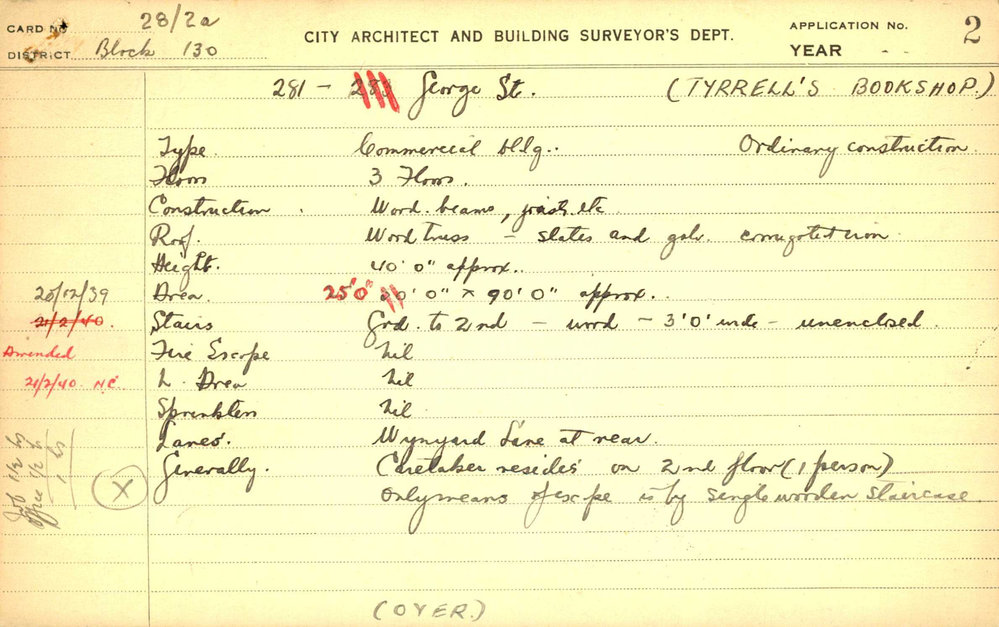 CARD No 28/2a
DISTRICT Block 130
CITY ARCHITECT AND BUILDING SURVEYOR'S DEPT.
APPLICATION No. 2
YEAR - -
281 - 283 George St. (TYRRELL'S BOOKSHOP.)
Type. Commercial bldg.. Ordinary construction
Floors 3 Floors.
Construction. Wood. beams, joists etc
Roof. Wood truss - slates and galv. corrugated iron
Height. 40' 0" approx..
20/12/39 Area. 25'0" 20' 0" x 90' 0" approx..
21/2/40. Stairs Grd. to 2nd - wood - 3'0" wide - unenclosed.
Amended Fire Escape Nil
21/2/40 N.C. L. Area Nil
Sprinklers Nil.
Lanes. Wynyard Lane at rear.
Generally. Caretaker resides on 2nd floor (1 person)
X Only means of escpe is by single wooden staircase
(OVER.)